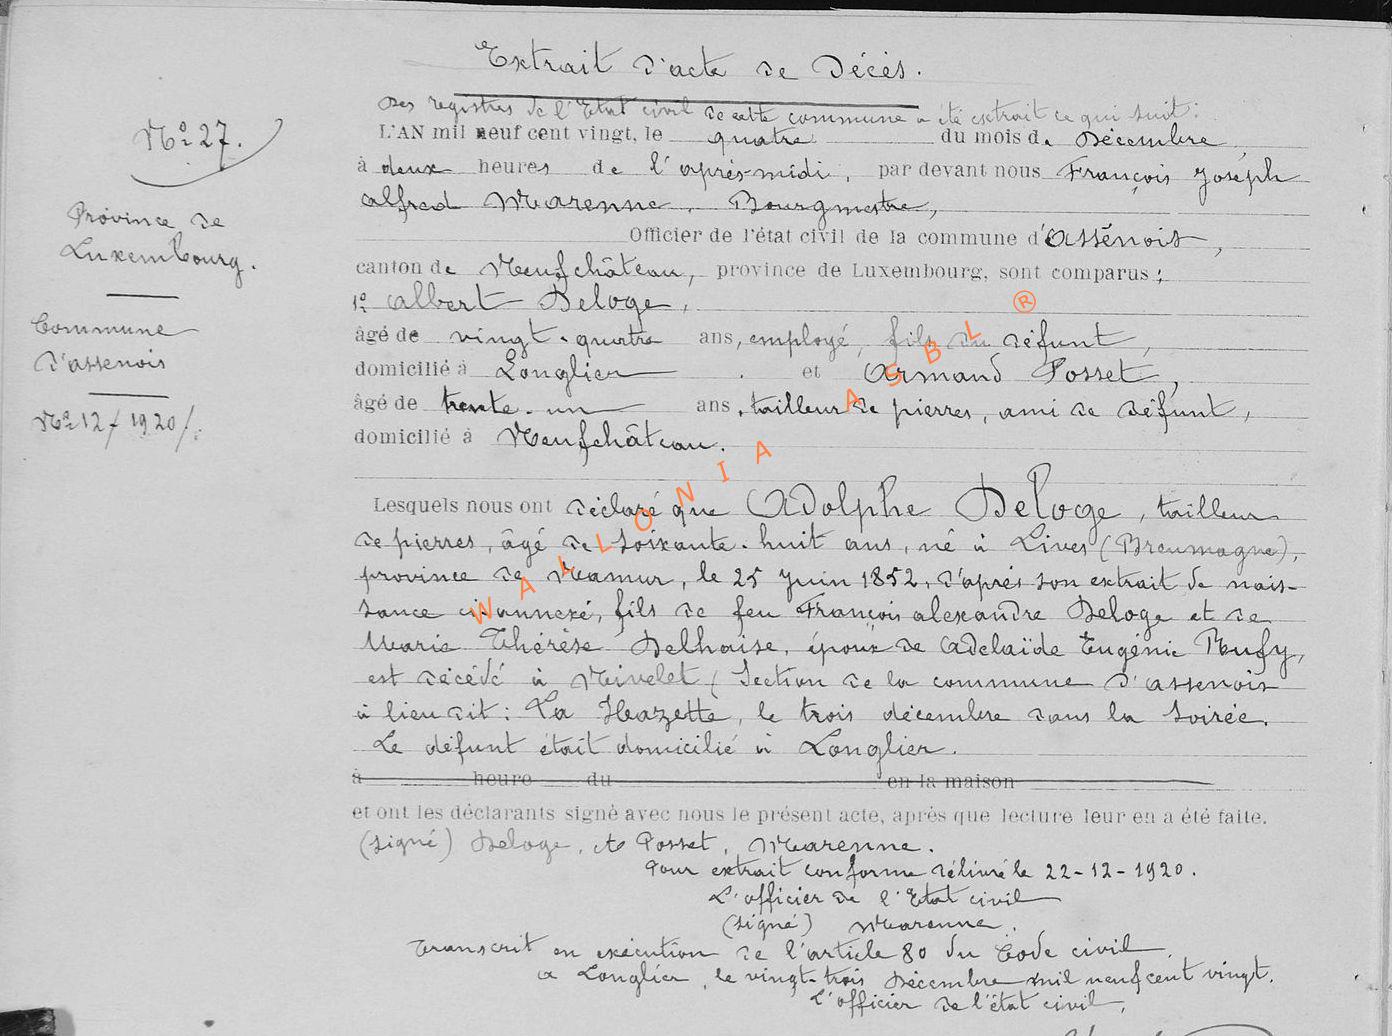 Extrait d'acte de Décès.
Des registres de l'Etat civil de cette commune a été extrait ce qui suit :
No 27.
L'AN mil neuf cent vingt, le quatre du mois de Décembre,
à deux heures de l'après-midi, par devant nous François Joseph
Alfred Marenne, Bourgmestre,
Province de
Luxembourg.
Officier de l'état civil de la commune d'Assenois,
canton de Neufchâteau, province de Luxembourg, sont comparus :
1o Albert Deloge,
Commune
d'Assenois
No 12/1920/.
âgé de vingt-quatre ans, employé, fils du défunt,
domicilié à Longlier et Armand Posset,
âgé de trente-un ans, tailleur de pierres, ami de défunt,
domicilié à Neufchâteau.
Lesquels nous ont déclaré que Adolphe Deloge, tailleur
de pierres, âgé de soixante-huit ans, né à Lives (Breumagne),
province de Namur, le 25 Juin 1852, d'après son extrait de nais-
sance ci-annexé, fils de feu François Alexandre Deloge et de
Marie Thérèse Delhaise, époux de Adelaïde Eugénie Pufy,
est décédé à Nivelet (Section de la commune d'Assenois
à lieu dit : La Hazette, le trois décembre dans la soirée.
Le défunt était domicilié à Longlier.
à heure du en la maison
et ont les déclarants signé avec nous le présent acte, après que lecture leur en a été faite.
(signé) Deloge, A Posset, Marenne.
Pour extrait conforme délivré le 22-12-1920.
L'officier de l'Etat civil
(signé) Marenne.
Transcrit en exécution de l'article 80 du Code civil
à Longlier, le vingt-trois Décembre mil neuf cent vingt.
L'officier de l'état civil,
WALLONIA ASBL ®